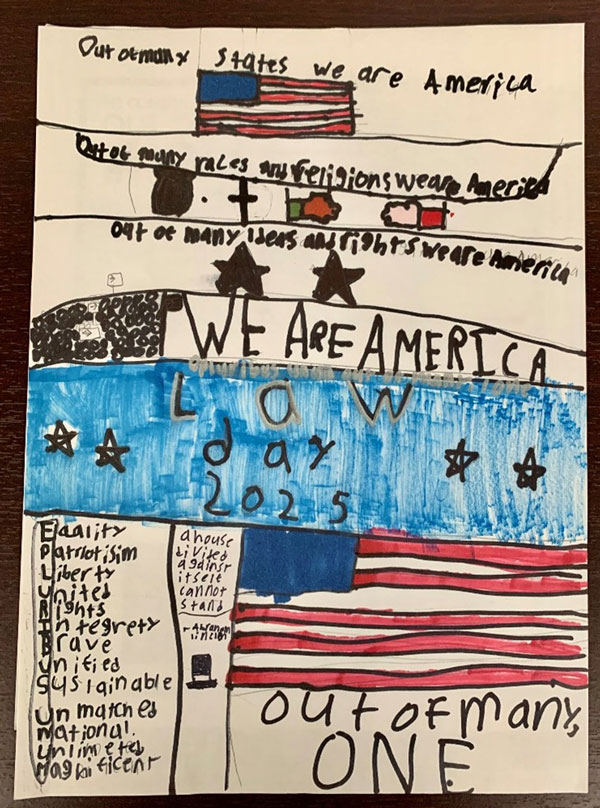 Out of many states we are America
Out of many races and religions we are America
Out of many ideas and rights we are America
WE ARE AMERICA
Law
day
2025
Eqality
Patriotisim
Liberty
United
Rights
Integrety
Brave
Unified
Sustainable
Unmatched
National
Unlimeted
Magnificent
a house
divited
against
itself
cannot
stand
- Abraham
lincoln
Out of many,
ONE